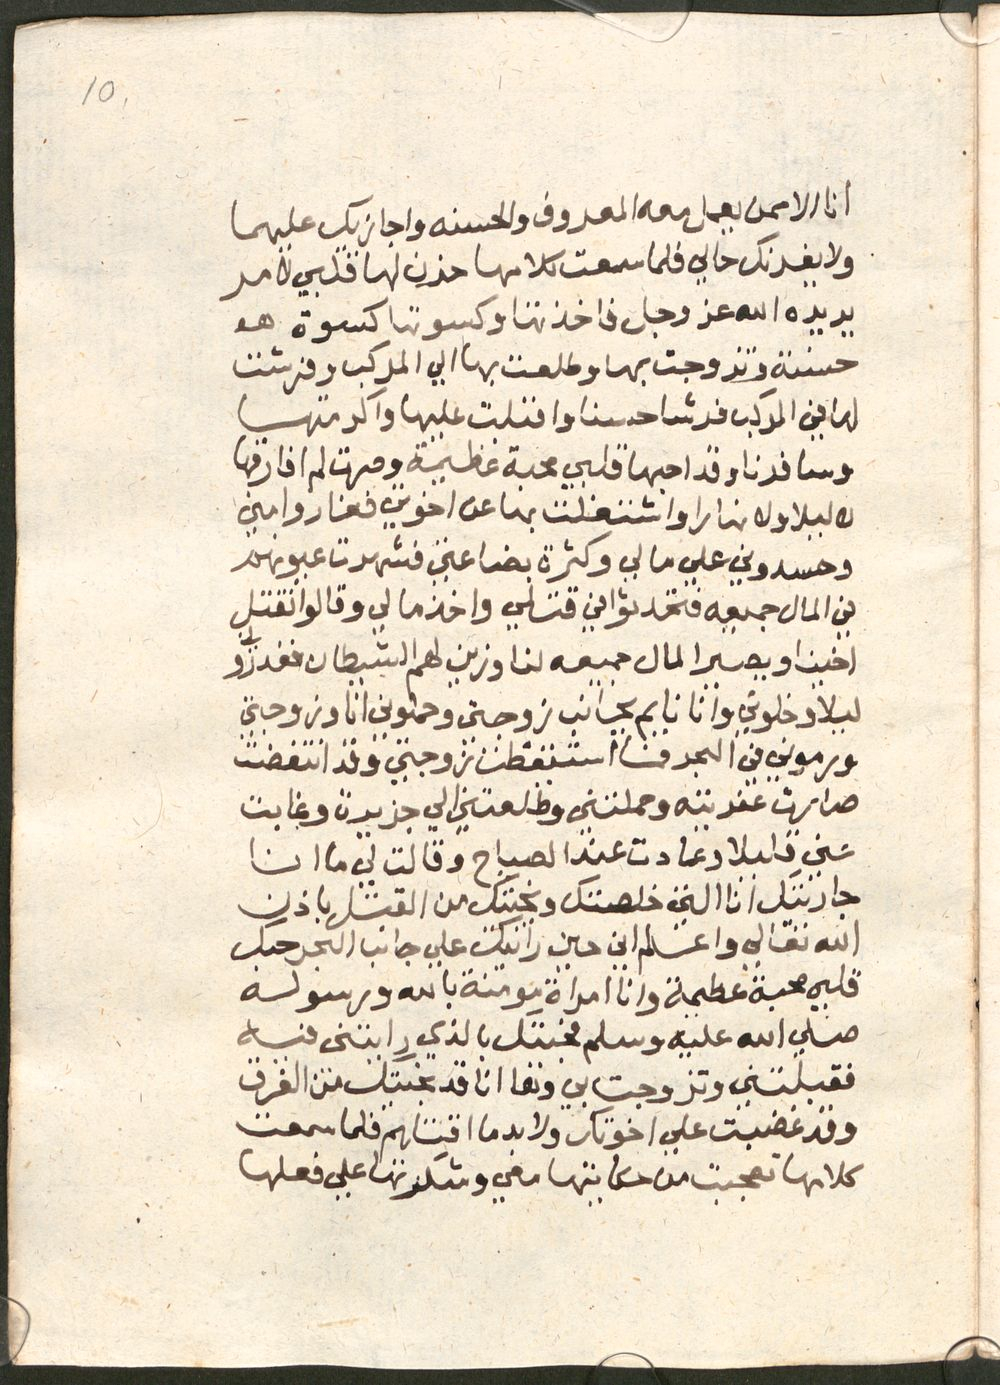 10
انا الا ممن يعمل معه المعروف والحسنه واجازيك عليهما
ولا يغرنك حالي فلما سمعت كلامها حزن لها قلبي لامر
يريده الله عز وجل فاخذتها وكسوتها كسوة
حسنة وتزوجت بها وطلعت بها الي المركب وفرشت
لها في المركب فرشا حسنا واقبلت عليها واكرمتها
وسافرنا وقد احبها قلبي محبة عظيمة وصرت لم افارقها
لا ليلا ولا نهارا واشتغلت بها عن اخوتي فغاروا مني
وحسدوني علي مالي وكثرة بضاعتي فشهدت عيونهم
في المال جميعه فتحدثوا في قتلي واخذ مالي وقالوا نقتل
اخينا ويصير المال جميعه لنا وزين لهم الشيطان فغدرو
ليلا وخلوني وانا نايم بجانب زوجتي وحملوني انا وزوجتي
ورموني في البحر فلما استيقظت زوجتي وقد انتفضت
صارت عفريته وحملتني وطلعتني الي جزيرة وغابت
عني قليلا وعادت عند الصباح وقالت لي ما انا
جاريتك انا التي خلصتك ونجيتك من القتل باذن
الله تعالي واعلم اني حين رايتك علي جانب البحر حبك
قلبي محبة عظيمة وانا امراة مومنة بالله ورسوله
صلي الله عليه وسلم فجيتك بالذي رايتني فيه
فقبلتني وتزوجت بي وها انا قد نجيتك من الغرق
وقد غضبت علي اخوتك ولا بد ما اقتلهم فلما سمعت
كلامها تعجبت من حكايتها معي وشكرتها علي فعلها